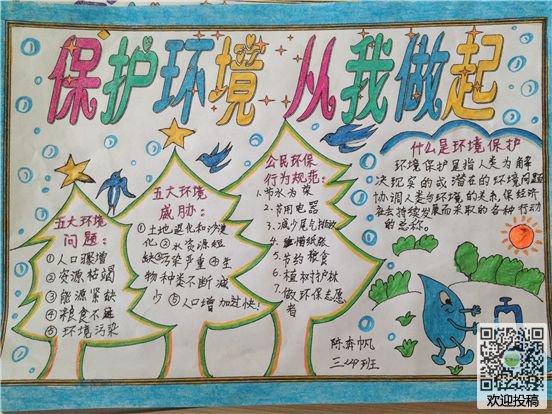 保护环境 从我做起
五大环境
问题：
①人口骤增
②资源枯竭
③能源紧缺
④粮食不足
⑤环境污染
五大环境
威胁：
①土地退化和沙漠
化②水资源短
缺③污染严重④生
物种类不断减
少⑤人口增加过快！
公民环保
行为规范：
1.节水为荣
2.节用电器
3.减少尾气排放
4.珍惜纸张
5.节约粮食
6.植树护林
7.做环保志愿
者
什么是环境保护
环境保护是指人类为解
决现实的或潜在的环境问题
协调人类与环境的关系,保经济
社会持续发展而采取的各种行动
的总称。
陈奔帆
三(4)班
欢迎投稿